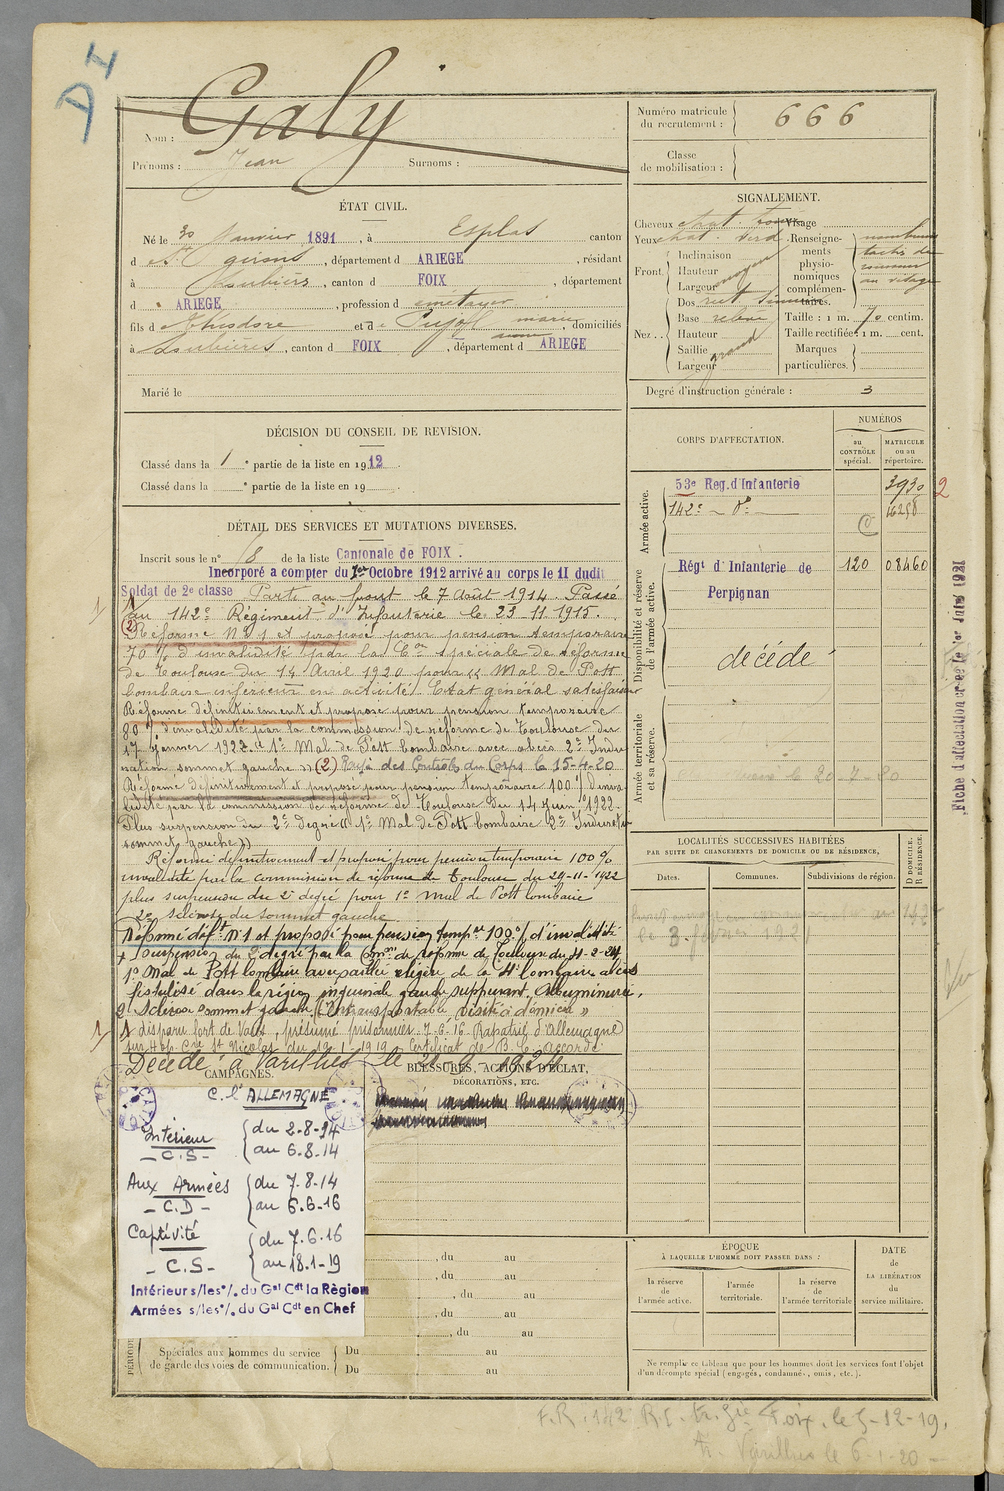 A 4
Galy
Nom :
Prénoms : Jean Surnoms :
ÉTAT CIVIL.
Né le 30 Janvier 1891, à Esplas canton
d St Girons, département d ARIEGE, résidant
à Soubiers, canton d FOIX, département
d ARIEGE, profession d
fils d Théodore et d Pujol domiciliés
à Loubières, canton d FOIX, département d ARIEGE
Marié le
DÉCISION DU CONSEIL DE REVISION.
Classé dans la 1e partie de la liste en 1912.
Classé dans la e partie de la liste en 19
DÉTAIL DES SERVICES ET MUTATIONS DIVERSES.
Inscrit sous le n° 18 de la liste Cantonale de FOIX.
Incorporé a compter du 1er Octobre 1912 arrivé au corps le 11 dudit
Soldat de 2e classe Parti au front le 7 Août 1914. Passé
1/ au 142e Régiment d'Infanterie le 23-11-1915.
(2) Réformé N°1 et proposé pour pension temporaire
70 % d'invalidité par la Con spéciale de réforme
de Toulouse du 14 Avril 1920 pour « Mal de Pott
lombaire inférieur en activité Etat général satisfaisant
Réformé définitivement et proposé pour pension temporaire
80 % d'invalidité par la commission de réforme de Toulouse du
17 Janvier 1922 « 1° Mal de Pott lombaire avec abcès 2° Indu
ration sommet gauche » (2) Rayé des Contrôles du Corps le 15-4-20
Réformé définitivement et proposé pour pension temporaire 100 % d'inva
lidité par la commission de réforme de Toulouse du 14 Juin 1922.
Plus suspension du 2e degré « 1° Mal de Pott lombaire 2° Induration
sommet gauche »
Réformé définitivement et proposé pour pension temporaire 100 %
invalidité par la Commission de réforme de Toulouse du 29-11-1922
plus suspension du 2e degré pour 1° mal de Pott lombaire
2° sclérose du sommet gauche
Réformé déft N°1 et proposé pour pension tempre 100 % d'invalidité
+ suspension du 2e degré par la Comon de réforme de Toulouse du 4-2-24
1° Mal de Pott lombaire avec saillie légère de la 4e lombaire abcès
fistulisé dans la région inguinale gauche suppurant, Albuminurie,
2° Sclérose sommet gauche. (Intransportable, visité à domicile »
1/ 1 disparu fort de Vaux, présumé prisonnier. 7.6.16 Rapatrié d'Allemagne
sur Hop. Cre St Nicolas du 19-1-1919 Certificat de B. C. accordé
Décédé à Varilhes le 1924
CAMPAGNES.
BLESSURES, ACTIONS D'ÉCLAT,
DÉCORATIONS, ETC.
C. l'ALLEMAGNE
Intérieur { du 2-8-14
- C.S - { au 6.8.14
Aux Armées { du 7.8.14
- C.D - { au 6.6-16
Captivité { du 7.6.16
- C.S - { au 18.1-19
Intérieur s/les°/. du Gal Cdt la Région
Armées s/les°/. du Gal Cdt en Chef
, du au
, du au
, du au
, du au
, du au
Spéciales aux hommes du service
de garde des voies de communication.
Du au
Du au
Numéro matricule
du recrutement : 666
Classe
de mobilisation :
SIGNALEMENT.
Cheveux chat. Visage
Yeux chat. verd.
Front. Inclinaison
Hauteur
Largeur moyen
Nez .. Dos rect
Base relevé
Hauteur
Saillie
Largeur grand
Renseigne-
ments
physio-
nomiques
complémen-
taires.
nombreuses
taches de
rousseur
au visage
Taille : 1 m. 70 centim.
Taille rectifiée : 1 m. cent.
Marques
particulières.
Degré d'instruction générale : 3
CORPS D'AFFECTATION.
NUMÉROS
au
CONTRÔLE
spécial.
MATRICULE
ou au
répertoire.
Armée active.
53e Reg. d'Infanterie 3930 2
142e - do - 16258
Disponibilité et réserve
de l'armée active.
Régt d'Infanterie de 120 08460
Perpignan
décédé
Armée territoriale
et sa réserve.
le 20-7-20
LOCALITÉS SUCCESSIVES HABITÉES
PAR SUITE DE CHANGEMENTS DE DOMICILE OU DE RÉSIDENCE.
Dates.
Communes.
Subdivisions de région.
D DOMICILE.
R RÉSIDENCE.
le 3 février 1921
ÉPOQUE
À LAQUELLE L'HOMME DOIT PASSER DANS :
la réserve
de l'armée active.
l'armée
territoriale.
la réserve
de l'armée territoriale
DATE
de
LA LIBÉRATION
du
service militaire.
Ne remplir ce tableau que pour les hommes dont les services font l'objet
d'un décompte spécial (engagés, condamnés, omis, etc.).
Fiche d'affectation créée le 1er Juin 1921
F.R. 142 R.I. tr. Gie Foix, le 5-12-19.
tr. Varilhes le 6-1-20